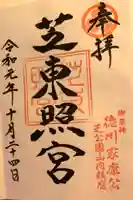 奉拝
御祭神
徳川家康公
芝公園山内鎮座
芝東照宮
令和元年十月二十四日